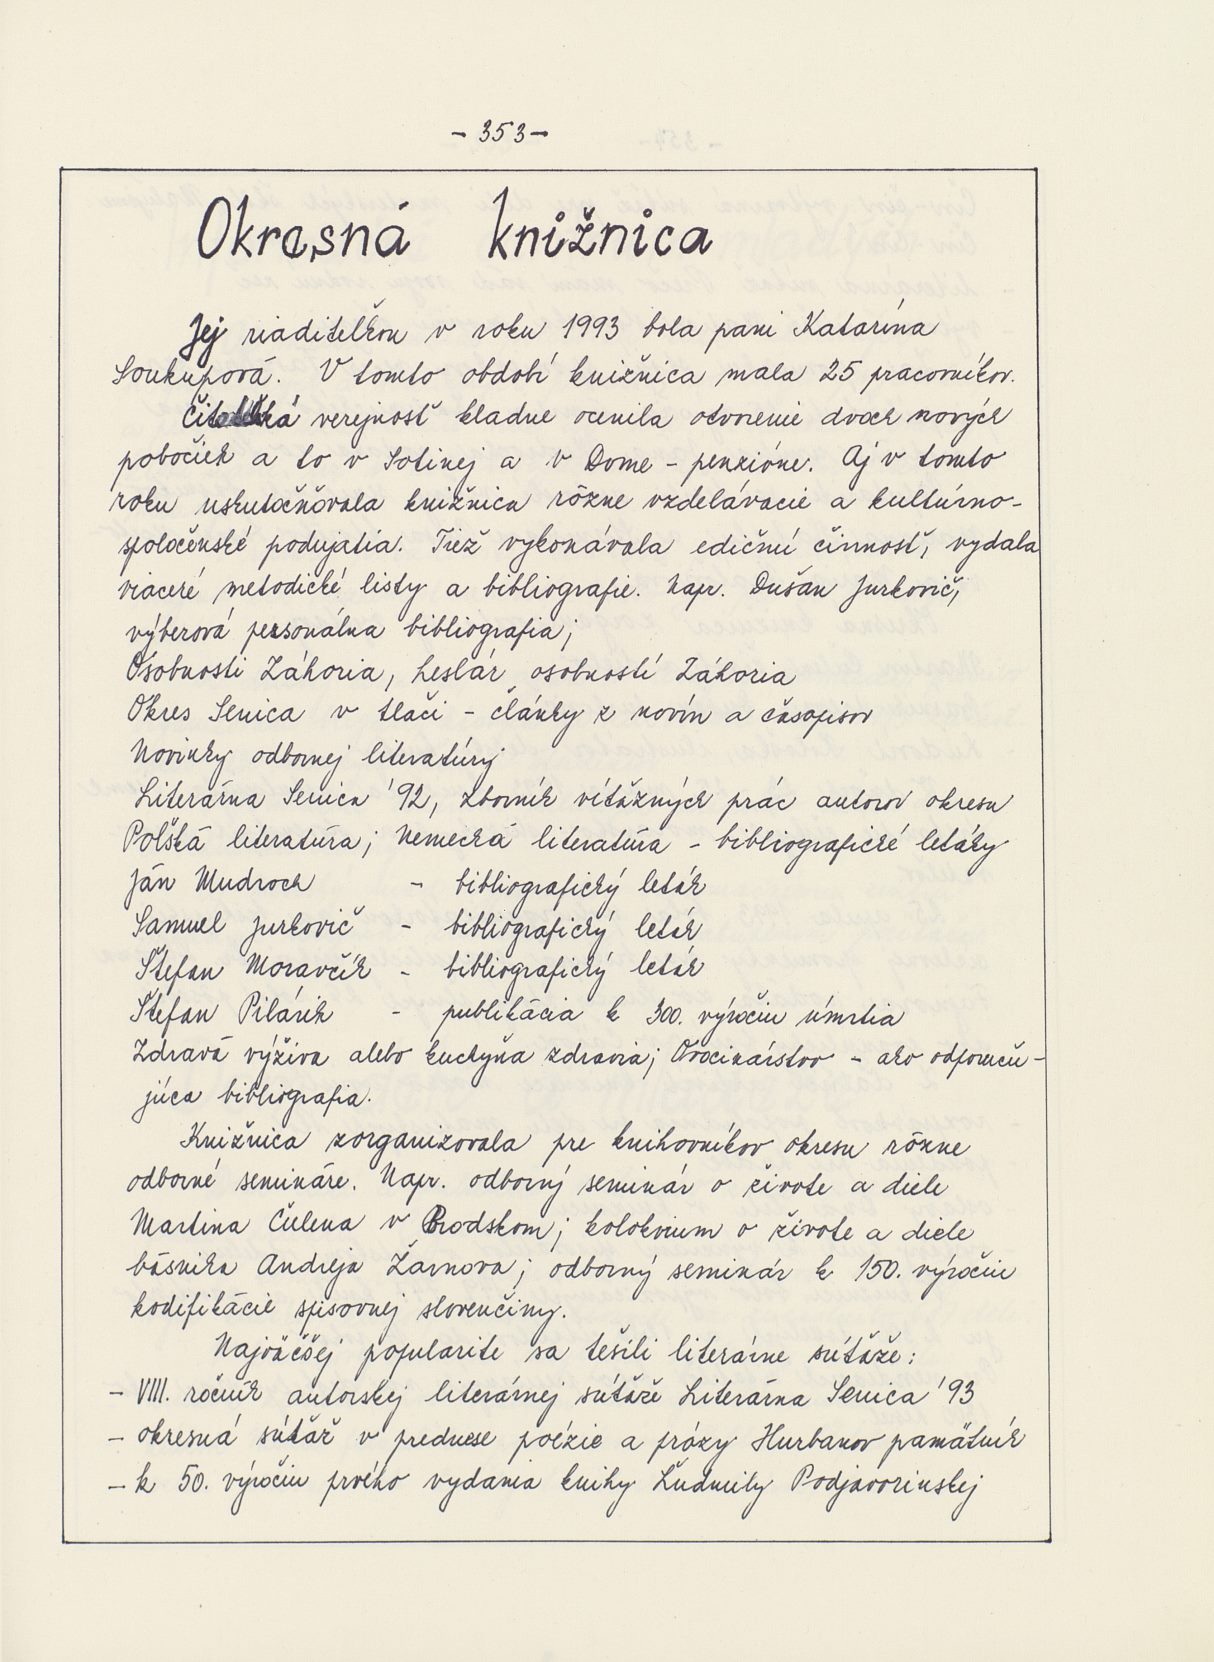 - 353 -
Okresná knižnica
Jej riaditeľkou v roku 1993 bola pani Katarína
Soukupová. V tomto období knižnica mala 25 pracovníkov.
Čitateľská verejnosť kladne ocenila otvorenie dvoch nových
pobočiek a to v Sotinej a v Dome - penzióne. Aj v tomto
roku uskutočňovala knižnica rôzne vzdelávacie a kultúrno-
spoločenské podujatia. Tiež vykonávala edičnú činnosť, vydala
viaceré metodické listy a bibliografie. Napr. Dušan Jurkovič,
výberová personálna bibliografia;
Osobnosti Záhoria, heslár osobností Záhoria
Okres Senica v tlači - články z novín a časopisov
Novinky odbornej literatúry
Literárna Senica '92, zborník víťazných prác autorov okresu
Poľská literatúra; Nemecká literatúra - bibliografické letáky
Ján Mudroch - bibliografický leták
Samuel Jurkovič - bibliografický leták
Štefan Moravčík - bibliografický leták
Štefan Pilárik - publikácia k 300. výročiu úmrtia
Zdravá výživa alebo kuchyňa zdravia; Ovocinárstvo - ako odporuču-
júca bibliografia.
Knižnica zorganizovala pre knihovníkov okresu rôzne
odborné semináre. Napr. odborný seminár o živote a diele
Martina Čulena v Brodskom; kolokvium o živote a diele
básnika Andreja Žarnova; odborný seminár k 150. výročiu
kodifikácie spisovnej slovenčiny.
Najväčšej popularite sa tešili literárne súťaže:
- VIII. ročník autorskej literárnej súťaže Literárna Senica '93
- okresná súťaž v prednese poézie a prózy Hurbanov pamätník
- k 50. výročiu prvého vydania knihy Ľudmily Podjavorinskej